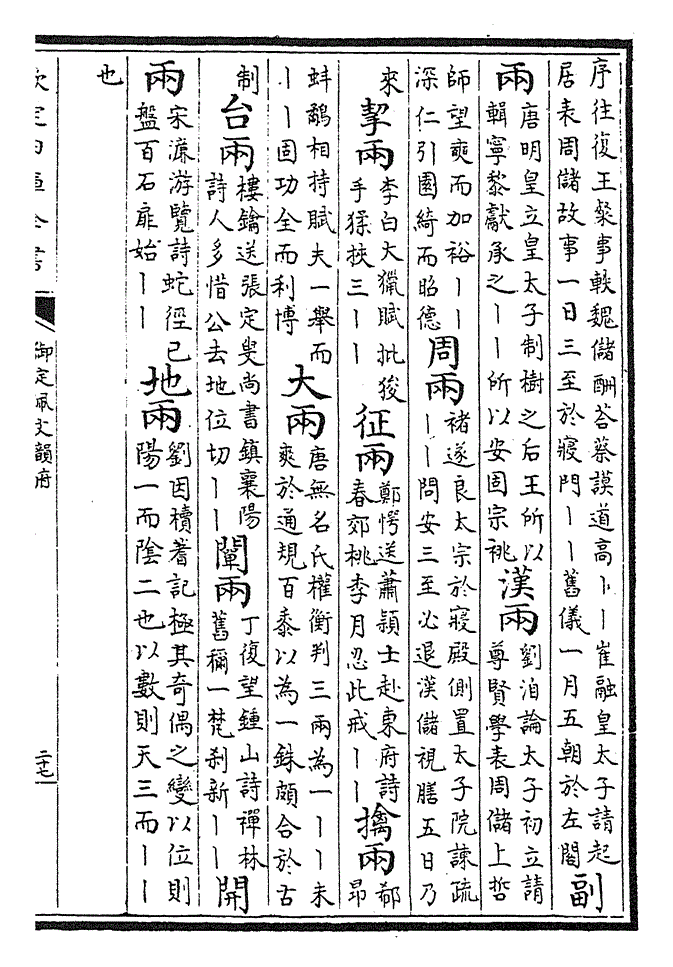 序往復王粲事軼魏儲酬荅蔡謨道高丨丨崔融皇太子請起
居表周儲故事一日三至於寢門丨丨舊儀一月五朝於左閣
副
兩
唐明皇立皇太子制樹之后王所以
輯寧黎獻承之丨丨所以安固宗祧
漢兩
劉洎論太子初立請
尊賢學表周儲上哲
師望奭而加裕丨丨
深仁引園綺而昭德
周兩
褚遂良太宗於寢殿側置太子院諫疏
丨丨問安三至必退漢儲視膳五日乃
來
挈兩
李白大獵賦批狻
手猱挾三丨丨
征兩
鄭愕送蕭頴士赴東府詩
春郊桃李月忍此戒丨丨
擒兩
郗
昂
蚌鷸相持賦夫一舉而
丨丨固功全而利博
大兩
唐無名氏權衡判三兩為一丨丨未
爽於通規百黍以為一銖頗合於古
制
台兩
樓鑰送張定叟尚書鎮襄陽
詩人多惜公去地位切丨丨
闡兩
丁復望鍾山詩禪林
舊稱一梵刹新丨丨
開
兩
宋濂游覽詩蛇徑已
盤百石扉始丨丨
地兩
劉因櫝蓍記極其奇偶之變以位則
陽一而陰二也以數則天三而丨丨
也
欽定四庫全書
御定佩文韻府
二十七